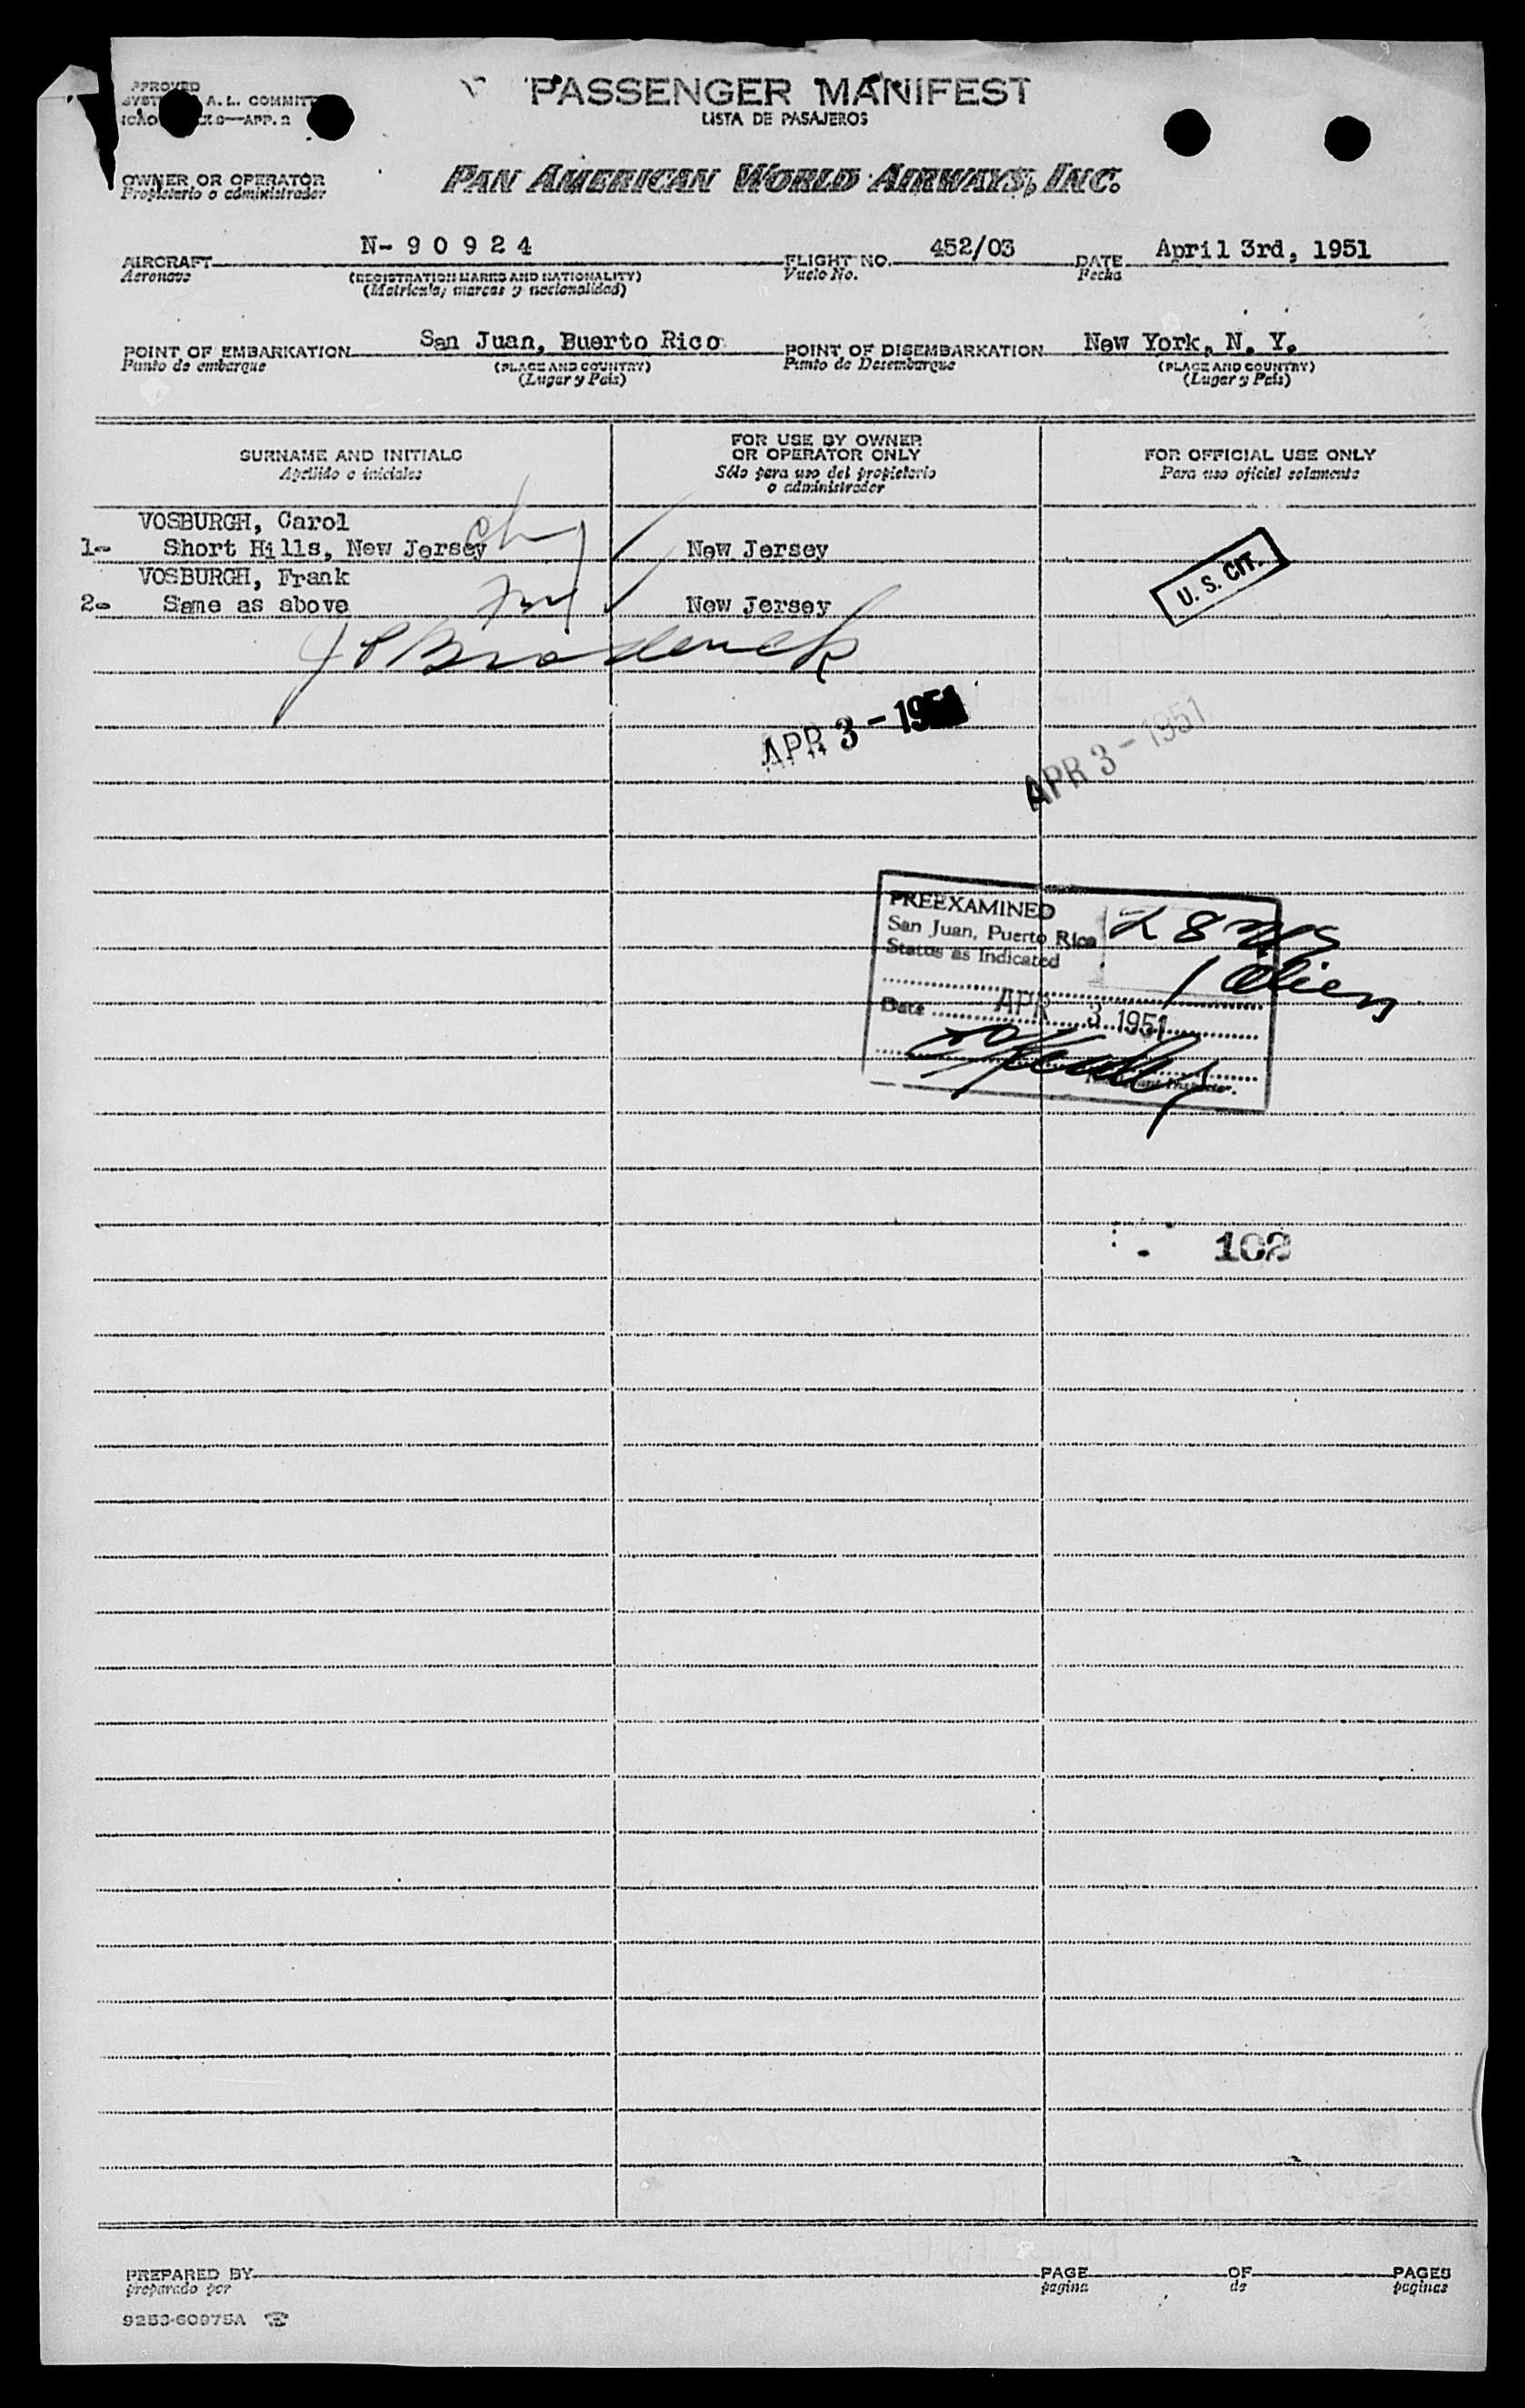 PASSENGER MANIFEST
LISTA DE PASAJEROS
PPROVED
A. L. COMMITT
APP. 2
OWNER OR OPERATOR
Propietario o administrador
PAN AMERICAN WORLD AIRWAYS, INC.
AIRCRAFT N- 9 0 9 2 4 FLIGHT NO. 452/03 DATE April 3rd, 1951
Aeronave (REGISTRATION MARKS AND NATIONALITY) Vuelo No. Fecha
(Matricula, marcas y nacionalidad)
POINT OF EMBARKATION San Juan, Buerto Rico POINT OF DISEMBARKATION New York, N. Y.
Punto de embarque (PLACE AND COUNTRY) Punto de Desembarque (PLACE AND COUNTRY)
(Lugar y Pais) (Lugar y Pais)
SURNAME AND INITIALS FOR USE BY OWNER OR OPERATOR ONLY FOR OFFICIAL USE ONLY
Apellido e iniciales Sólo para uso del propietario o administrador Para uso oficial solamente
VOSBURGH, Carol
1- Short Hills, New Jersey New Jersey
VOSBURGH, Frank
2- Same as above New Jersey
U. S. CIT.
J P Broderick
APR 3 - 195
APR 3 - 1951
PREEXAMINED
San Juan, Puerto Rico
Status as Indicated
28
1 alien
Date APR 3 1951
Inspector.
102
PREPARED BY PAGE OF PAGES
preparado por pagina de paginas
9253-60975A